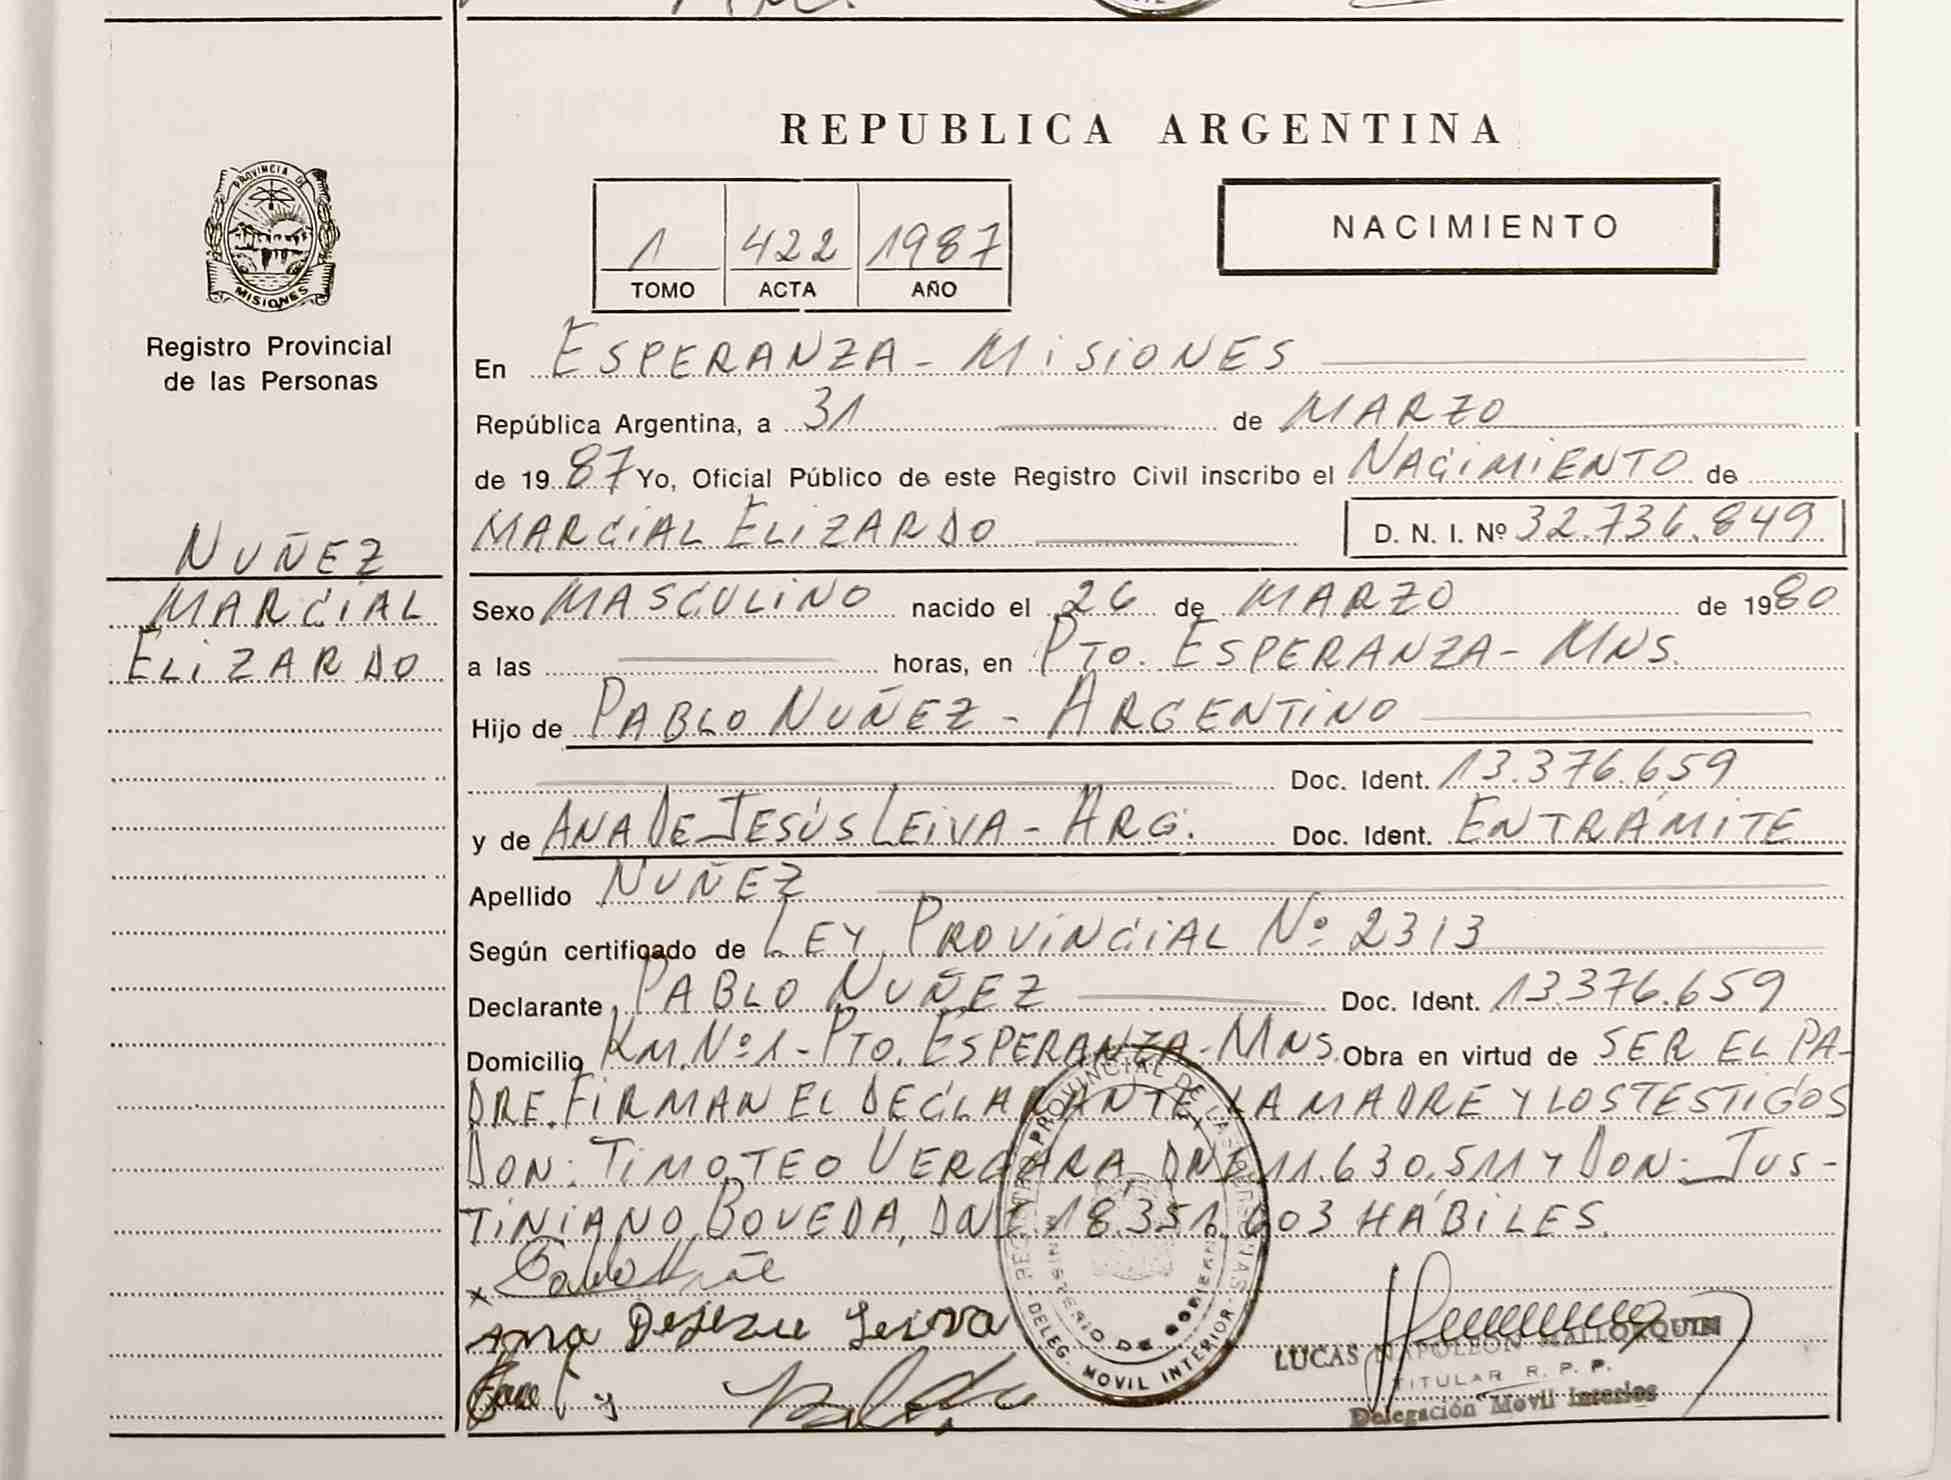 REPUBLICA ARGENTINA
PROVINCIA DE
MISIONES
Registro Provincial
de las Personas
1 422 1987
TOMO ACTA AÑO
NACIMIENTO
En ESPERANZA - MISIONES
República Argentina, a 31 de MARZO
de 1987 Yo, Oficial Público de este Registro Civil inscribo el NACIMIENTO de
MARCIAL ELIZARDO D. N. I. Nº 32.736.849
NUÑEZ
MARCIAL
ELIZARDO
Sexo MASCULINO nacido el 26 de MARZO de 1980
a las horas, en PTO. ESPERANZA - MNS.
Hijo de PABLO NUÑEZ - ARGENTINO
Doc. Ident. 13.376.659
y de ANA DE JESÚS LEIVA - ARG. Doc. Ident. EN TRÁMITE
Apellido NUÑEZ
Según certificado de LEY PROVINCIAL Nº 2313
Declarante PABLO NUÑEZ Doc. Ident. 13.376.659
Domicilio KM. Nº 1 - PTO. ESPERANZA - MNS. Obra en virtud de SER EL PA-
DRE. FIRMAN EL DECLARANTE, LA MADRE Y LOS TESTIGOS
DON: TIMOTEO VERGARA, DNI 11.630.511 Y DON: JUS-
TINIANO BOVEDA, DNI 18.351.603 HÁBILES.
x Pablo Nuñe
Ana Dejezu Leiva
REGISTRO PROVINCIAL DE LAS PERSONAS
MINISTERIO DE GOBIERNO
- DELEG. MOVIL INTERIOR -
LUCAS NAPOLEON MALLORQUIN
TITULAR R. P. P.
Delegación Movil Interior